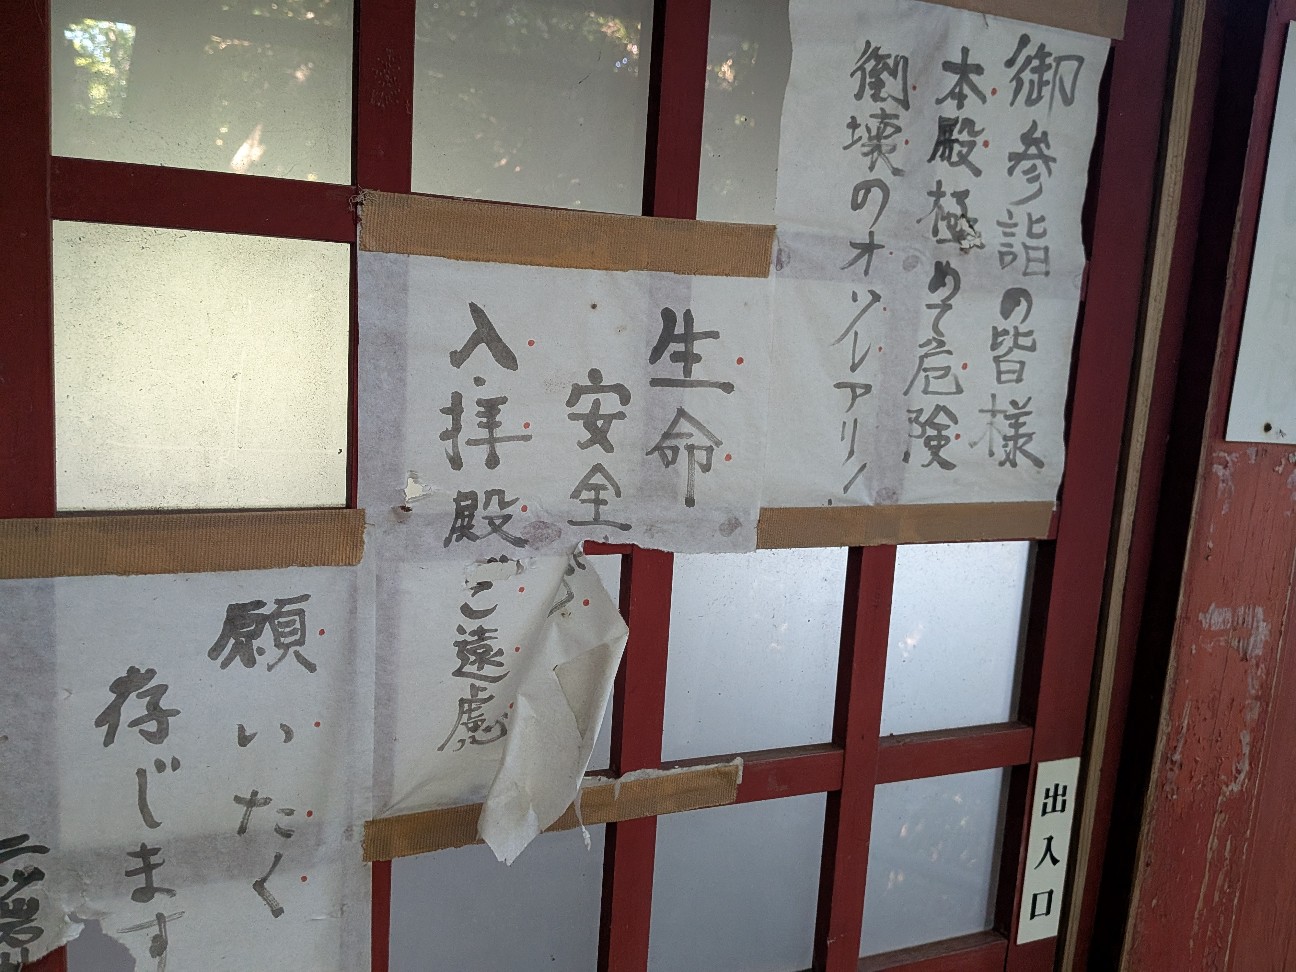 御参詣の皆様
本殿極めて危険
倒壊のオソレアリ
生命
安全
入拝殿ご遠慮
願いたく
存じます
出入口